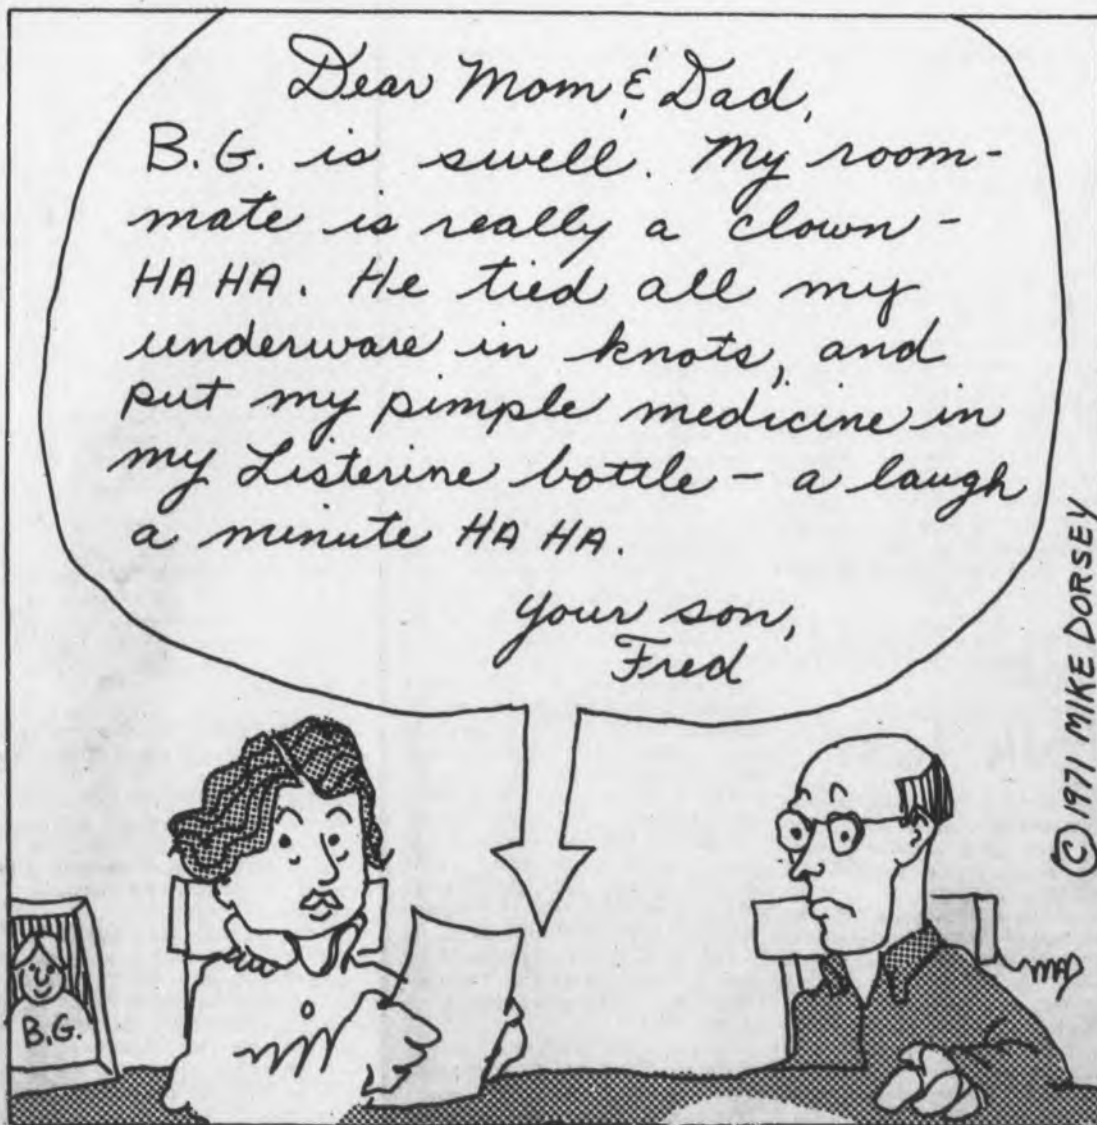 Dear Mom & Dad,
B.G. is swell. My room-
mate is really a clown -
HA HA. He tied all my
underware in knots, and
put my pimple medicine in
my Listerine bottle - a laugh
a minute HA HA.
your son,
Fred
© 1971 MIKE DORSEY
B.G.
MAD